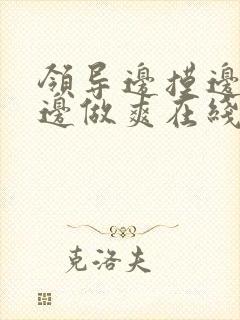 领导邊摸邊
邊做爽在綫
克洛夫